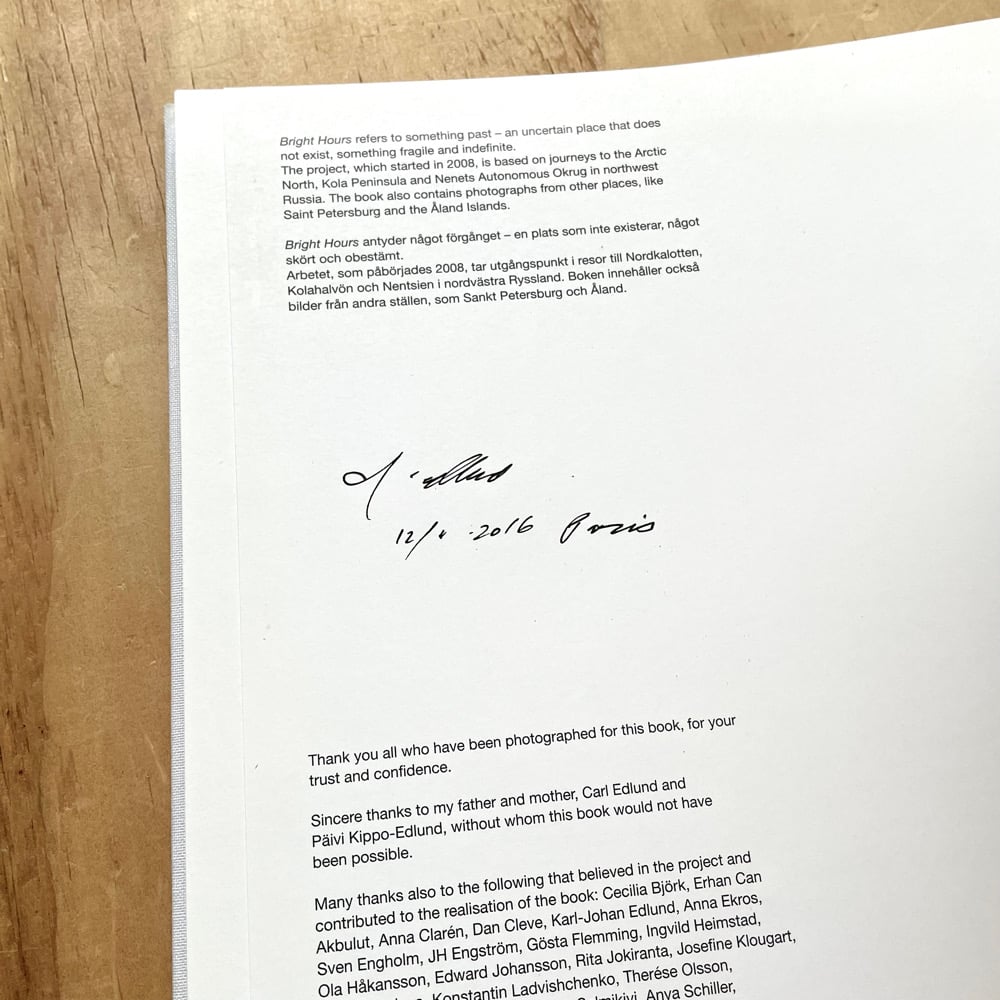 Bright Hours refers to something past – an uncertain place that does
not exist, something fragile and indefinite.
The project, which started in 2008, is based on journeys to the Arctic
North, Kola Peninsula and Nenets Autonomous Okrug in northwest
Russia. The book also contains photographs from other places, like
Saint Petersburg and the Åland Islands.
Bright Hours antyder något förgånget – en plats som inte existerar, något
skört och obestämt.
Arbetet, som påbörjades 2008, tar utgångspunkt i resor till Nordkalotten,
Kolahalvön och Nentsien i nordvästra Ryssland. Boken innehåller också
bilder från andra ställen, som Sankt Petersburg och Åland.
2016 Paris
Thank you all who have been photographed for this book, for your
trust and confidence.
Sincere thanks to my father and mother, Carl Edlund and
Päivi Kippo-Edlund, without whom this book would not have
been possible.
Many thanks also to the following that believed in the project and
contributed to the realisation of the book: Cecilia Björk, Erhan Can
Akbulut, Anna Clarén, Dan Cleve, Karl-Johan Edlund, Anna Ekros,
Sven Engholm, JH Engström, Gösta Flemming, Ingvild Heimstad,
Ola Håkansson, Edward Johansson, Rita Jokiranta, Josefine Klougart,
Konstantin Ladvishchenko, Therése Olsson,
Anya Schiller,